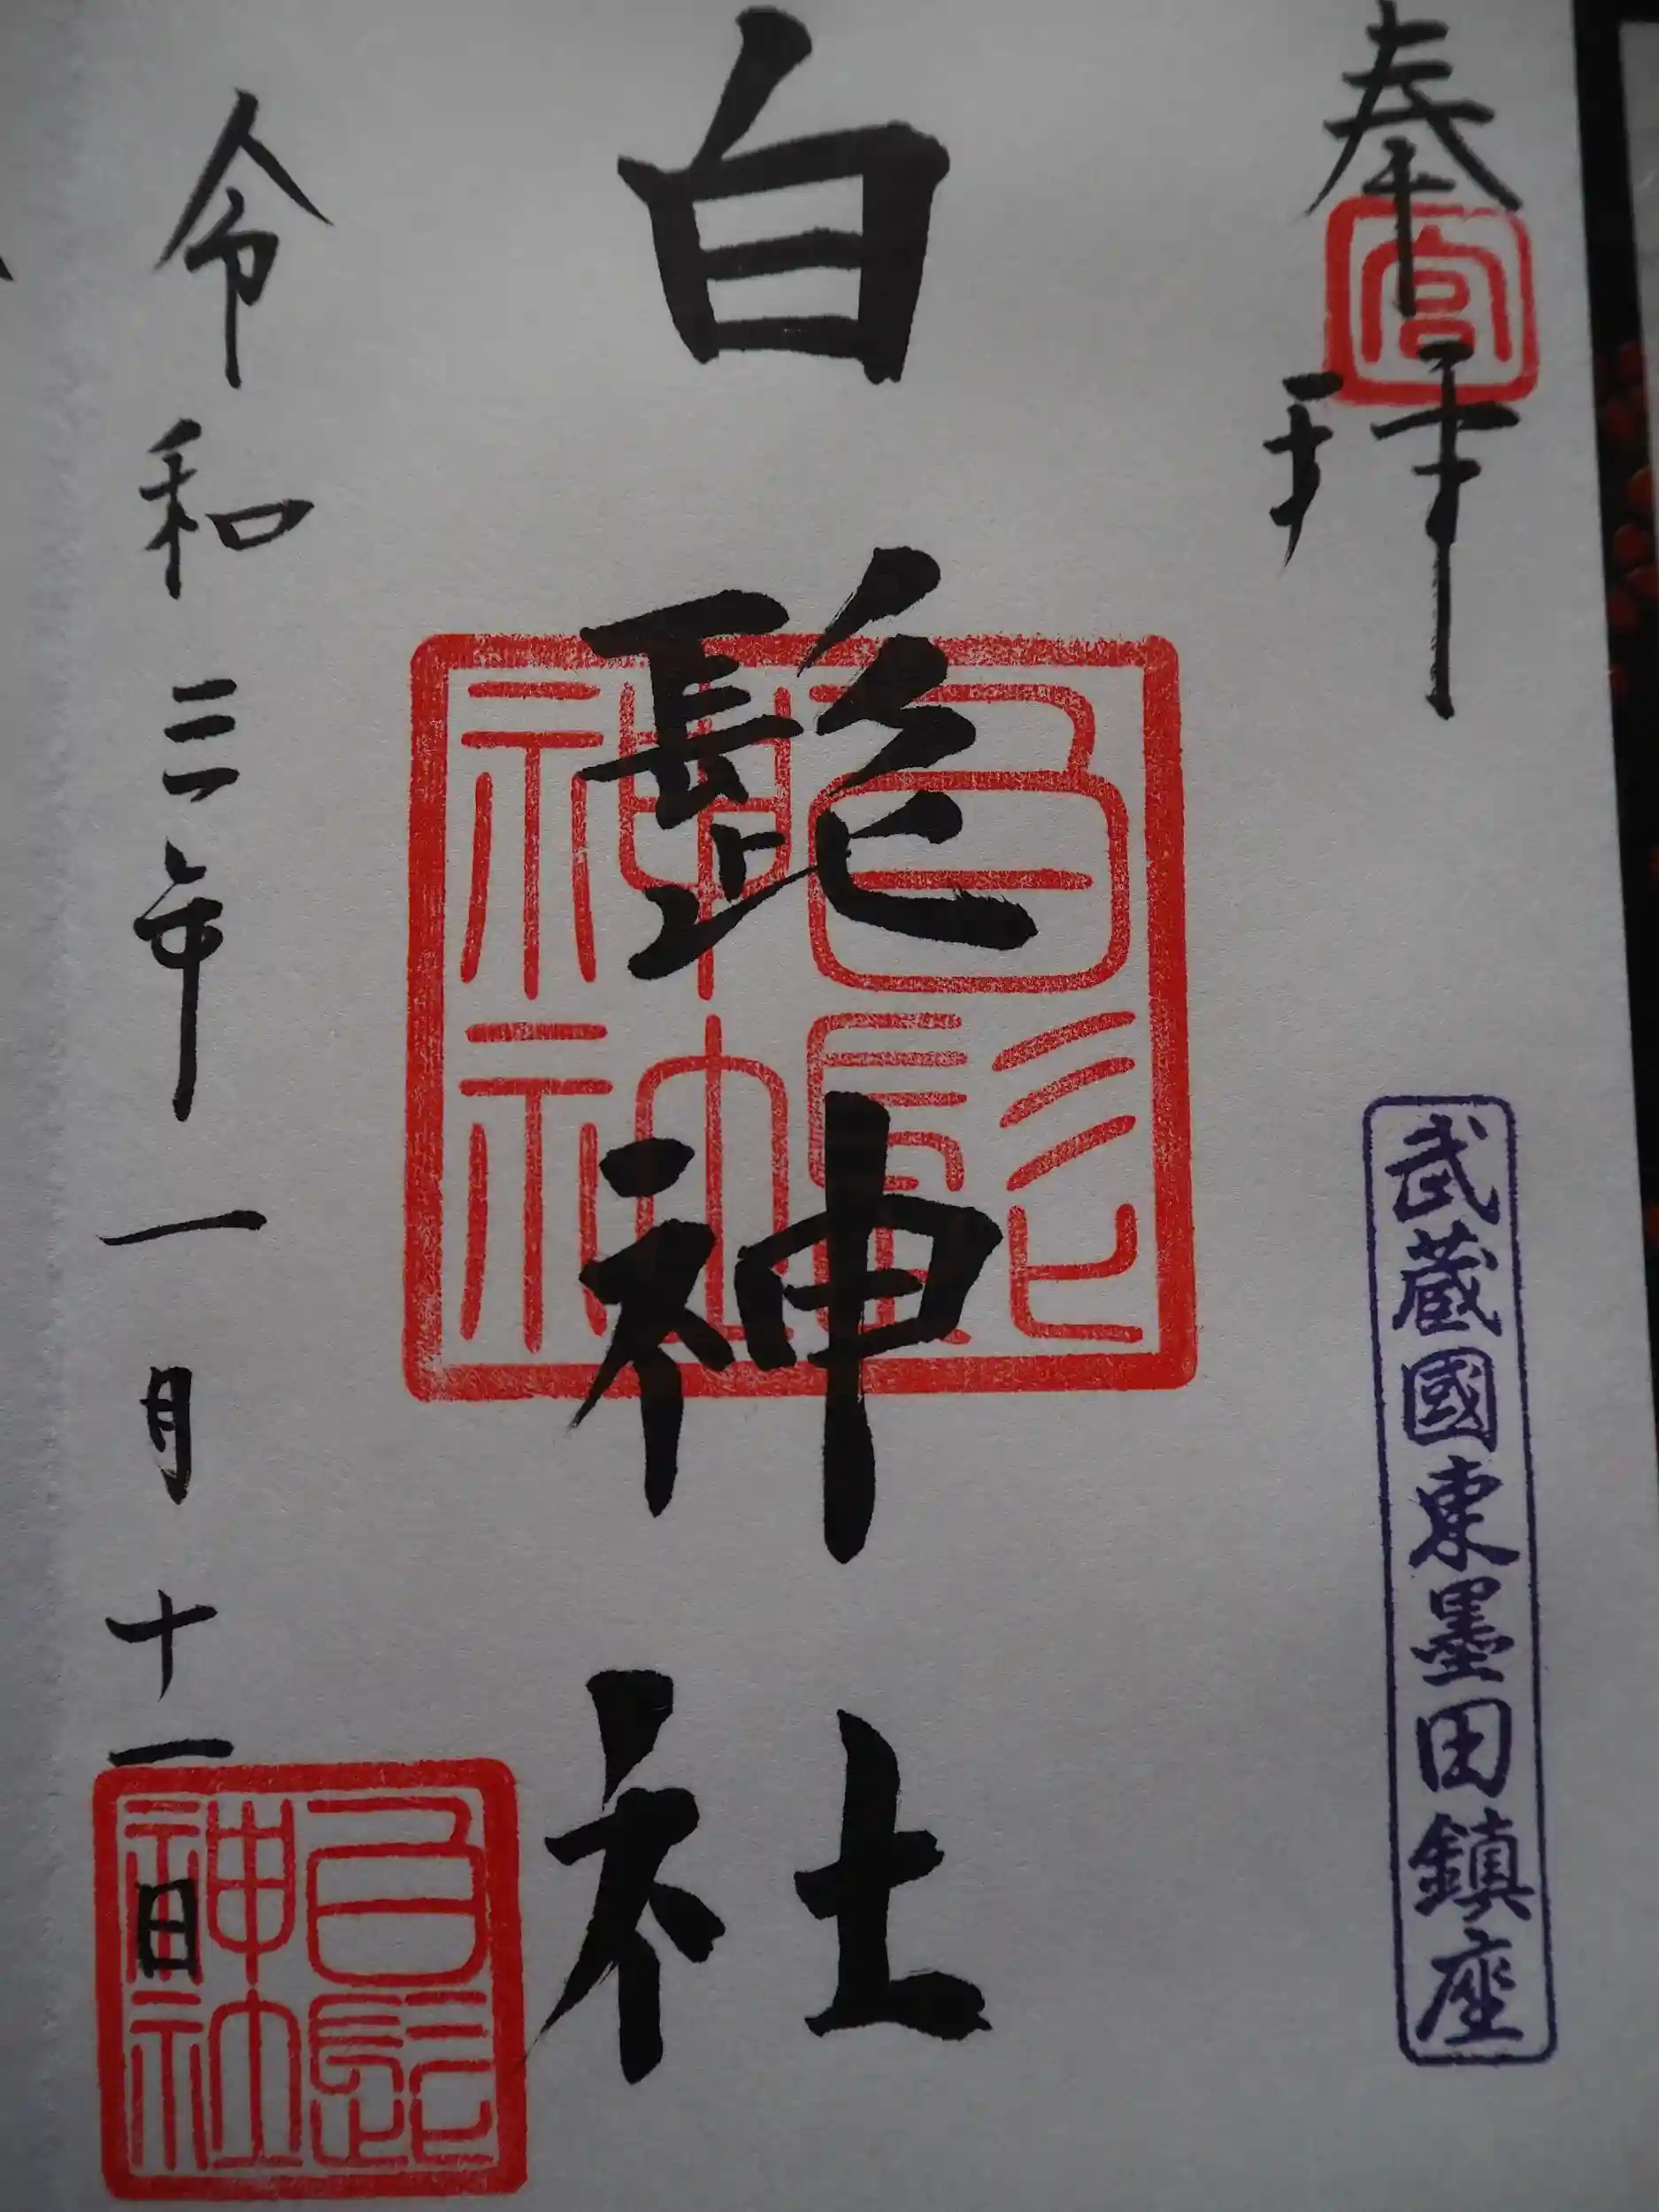 奉拝
宮
武蔵國東墨田鎮座
白髭神社
白髭
神社
令和三年一月十一日
白髭
神社